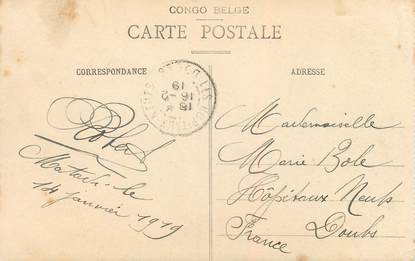 CONGO BELGE
CARTE POSTALE
CORRESPONDANCE
ADRESSE
18
16-2
19
Robert
Matadi le
14 janvier 1919
Mademoiselle
Marie Bole
Hôpitaux Neufs
Doubs
France